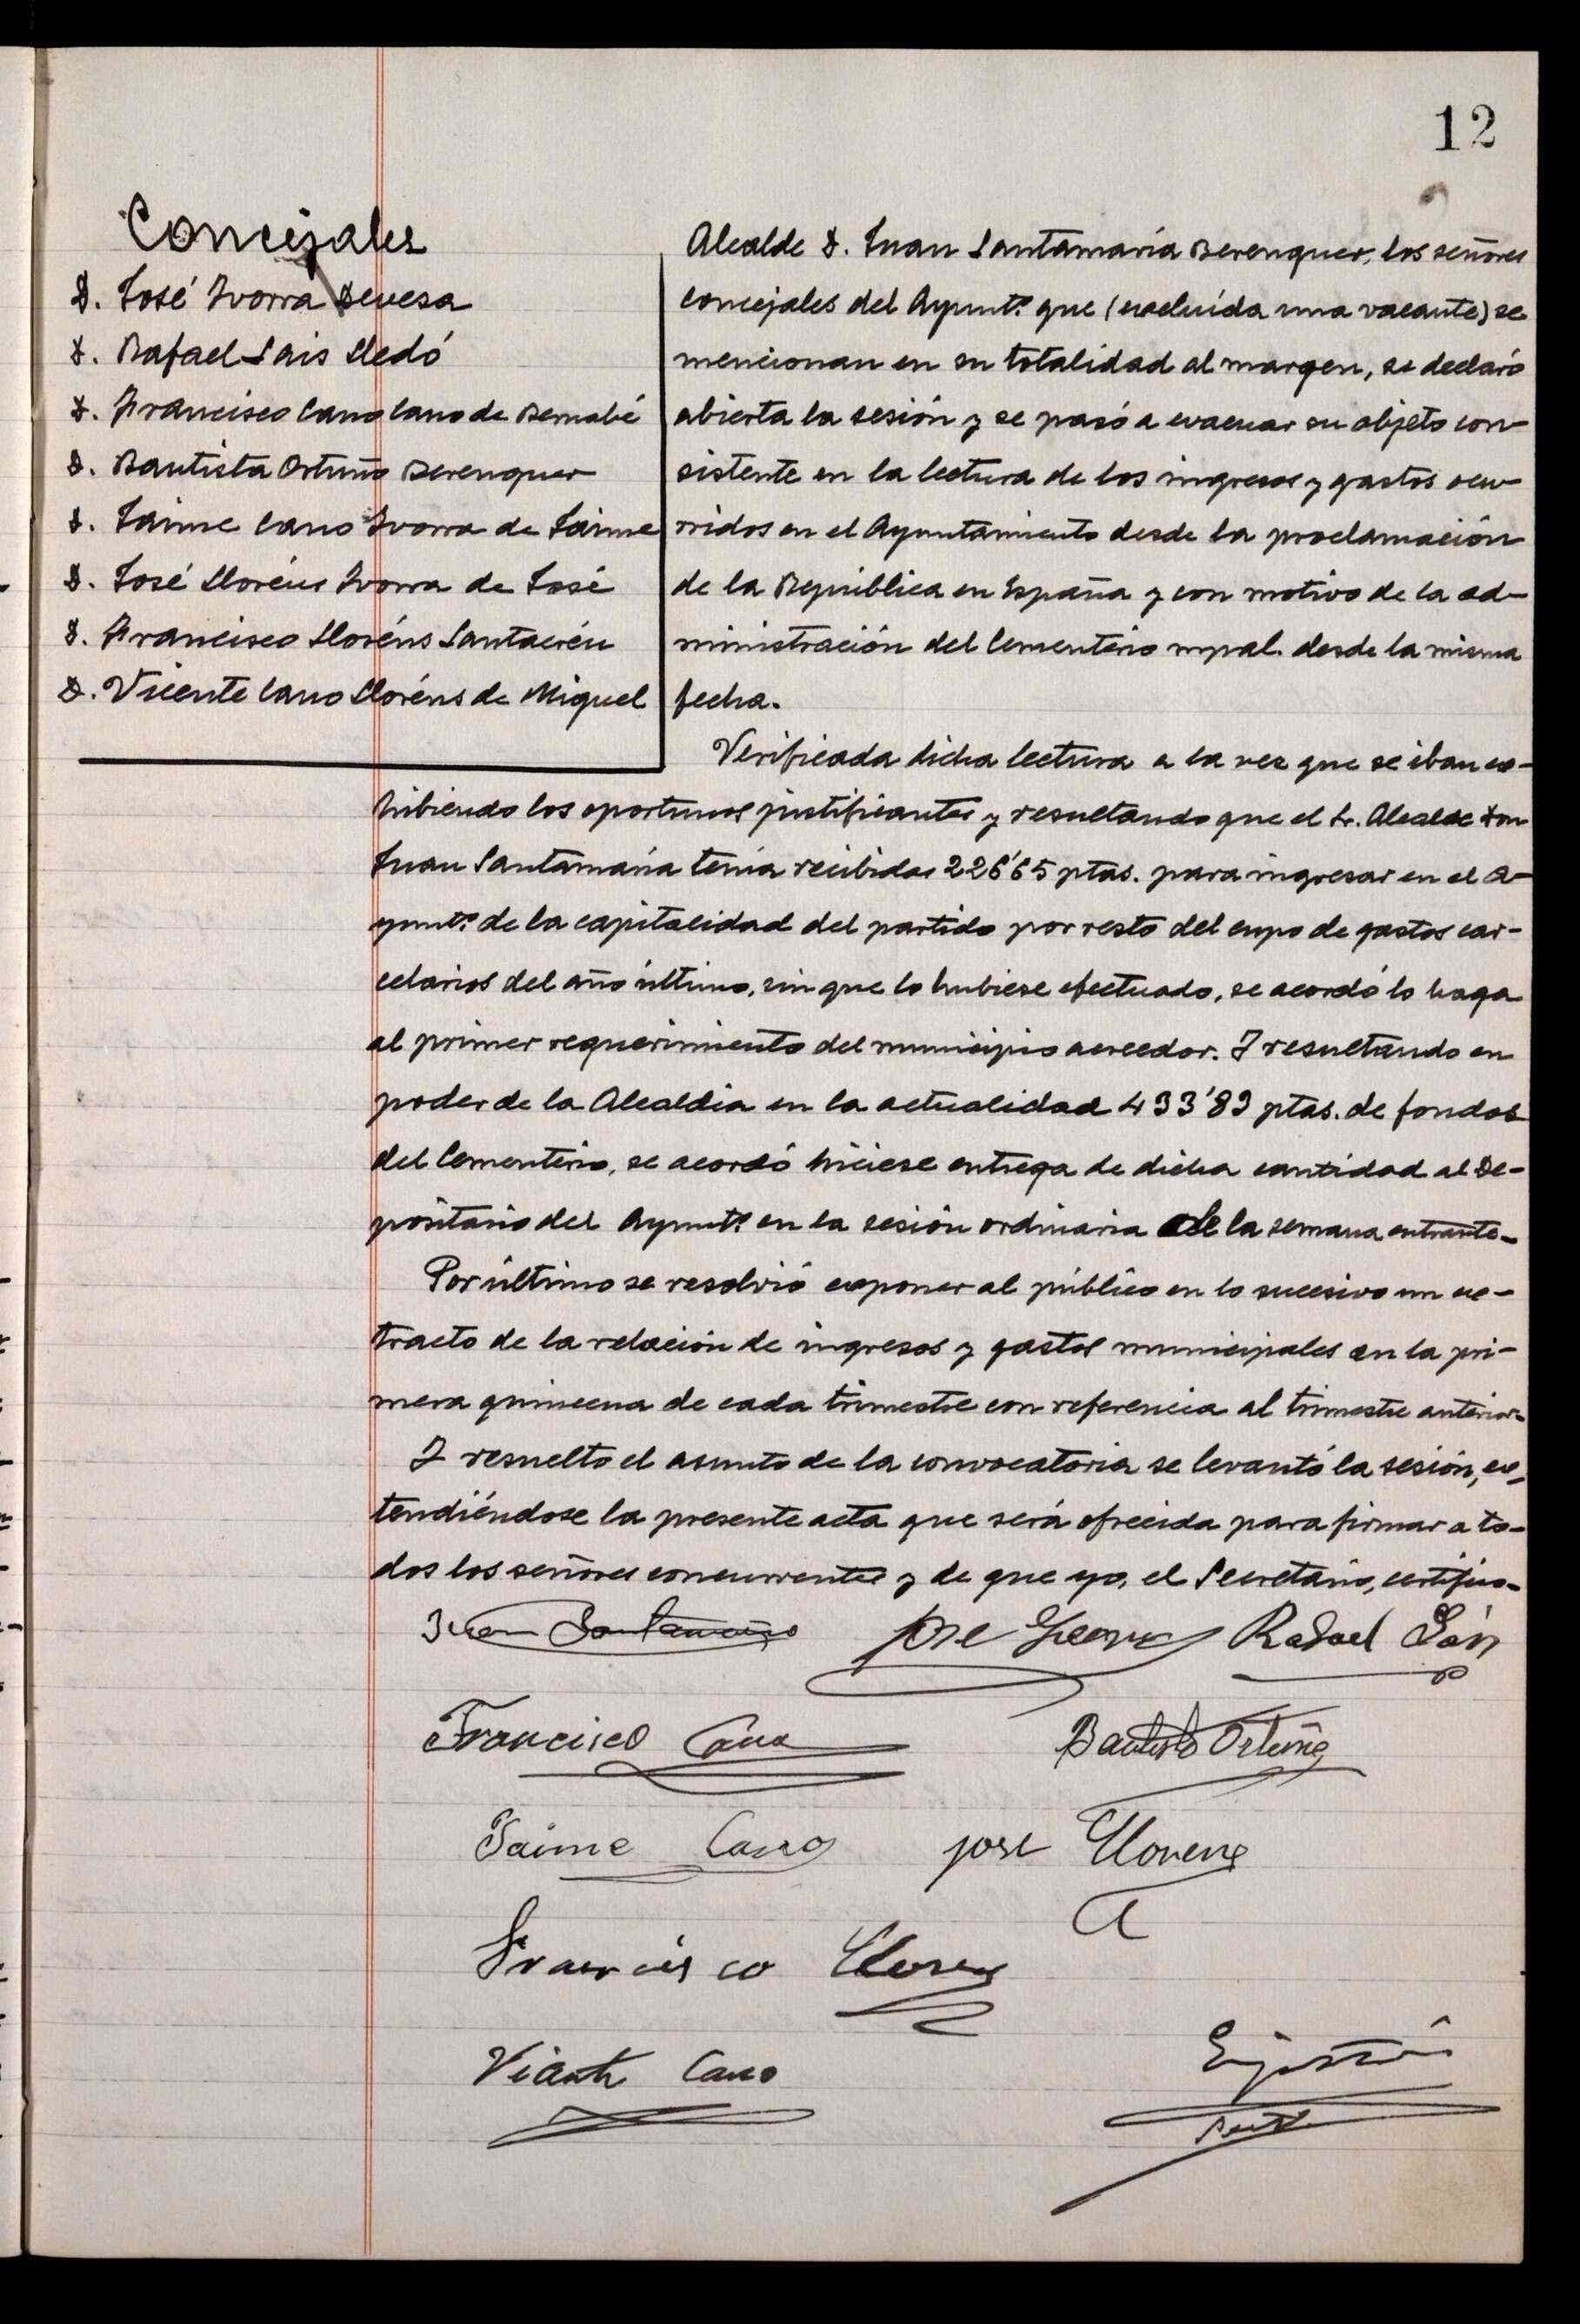 12
Concejales
D. José Ivorra Devesa
D. Rafael Sais Lledó
D. Francisco Cano Cano de Bernabé
D. Bautista Ortuño Berenguer
D. Jaime Cano Ivorra de Jaime
D. José Lloréns Ivorra de José
D. Francisco Lloréns Santacréu
D. Vicente Cano Lloréns de Miguel
Alcalde D. Juan Santamaría Berenguer, los señores
concejales del Ayuntº que (excluída una vacante) se
mencionan en su totalidad al margen, se declaró
abierta la sesión y se pasó a evacuar su objeto con-
sistente en la lectura de los ingresos y gastos ocu-
rridos en el Ayuntamiento desde la proclamación
de la República en España y con motivo de la ad-
ministración del Cementerio mpal. desde la misma
fecha.
Verificada dicha lectura a la vez que se iban ex-
hibiendo los oportunos justificantes y resultando que el Sr. Alcalde Don
Juan Santamaría tenía recibidas 226'65 ptas. para ingresar en el A-
yuntº de la capitalidad del partido por resto del cupo de gastos car-
celarios del año último, sin que lo hubiese efectuado, se acordó lo haga
al primer requerimiento del municipio acreedor. Y resultando en
poder de la Alcaldía en la actualidad 493'89 ptas. de fondos
del Cementerio, se acordó hiciese entrega de dicha cantidad al De-
positario del Ayuntº en la sesión ordinaria de la semana entrante.
Por último se resolvió exponer al público en lo sucesivo un ex-
tracto de la relación de ingresos y gastos municipales en la pri-
mera quincena de cada trimestre con referencia al trimestre anterior.
Y resuelto el asunto de la convocatoria se levantó la sesión, ex-
tendiéndose la presente acta que será ofrecida para firmar a to-
dos los señores concurrentes y de que yo, el Secretario, certifico.
Juan Santamaría Jose Rafael Sais
Francisco Cano Bautista Ortuño
Jaime Cano jose Llorens
Francisco Llorens
Vicente Cano